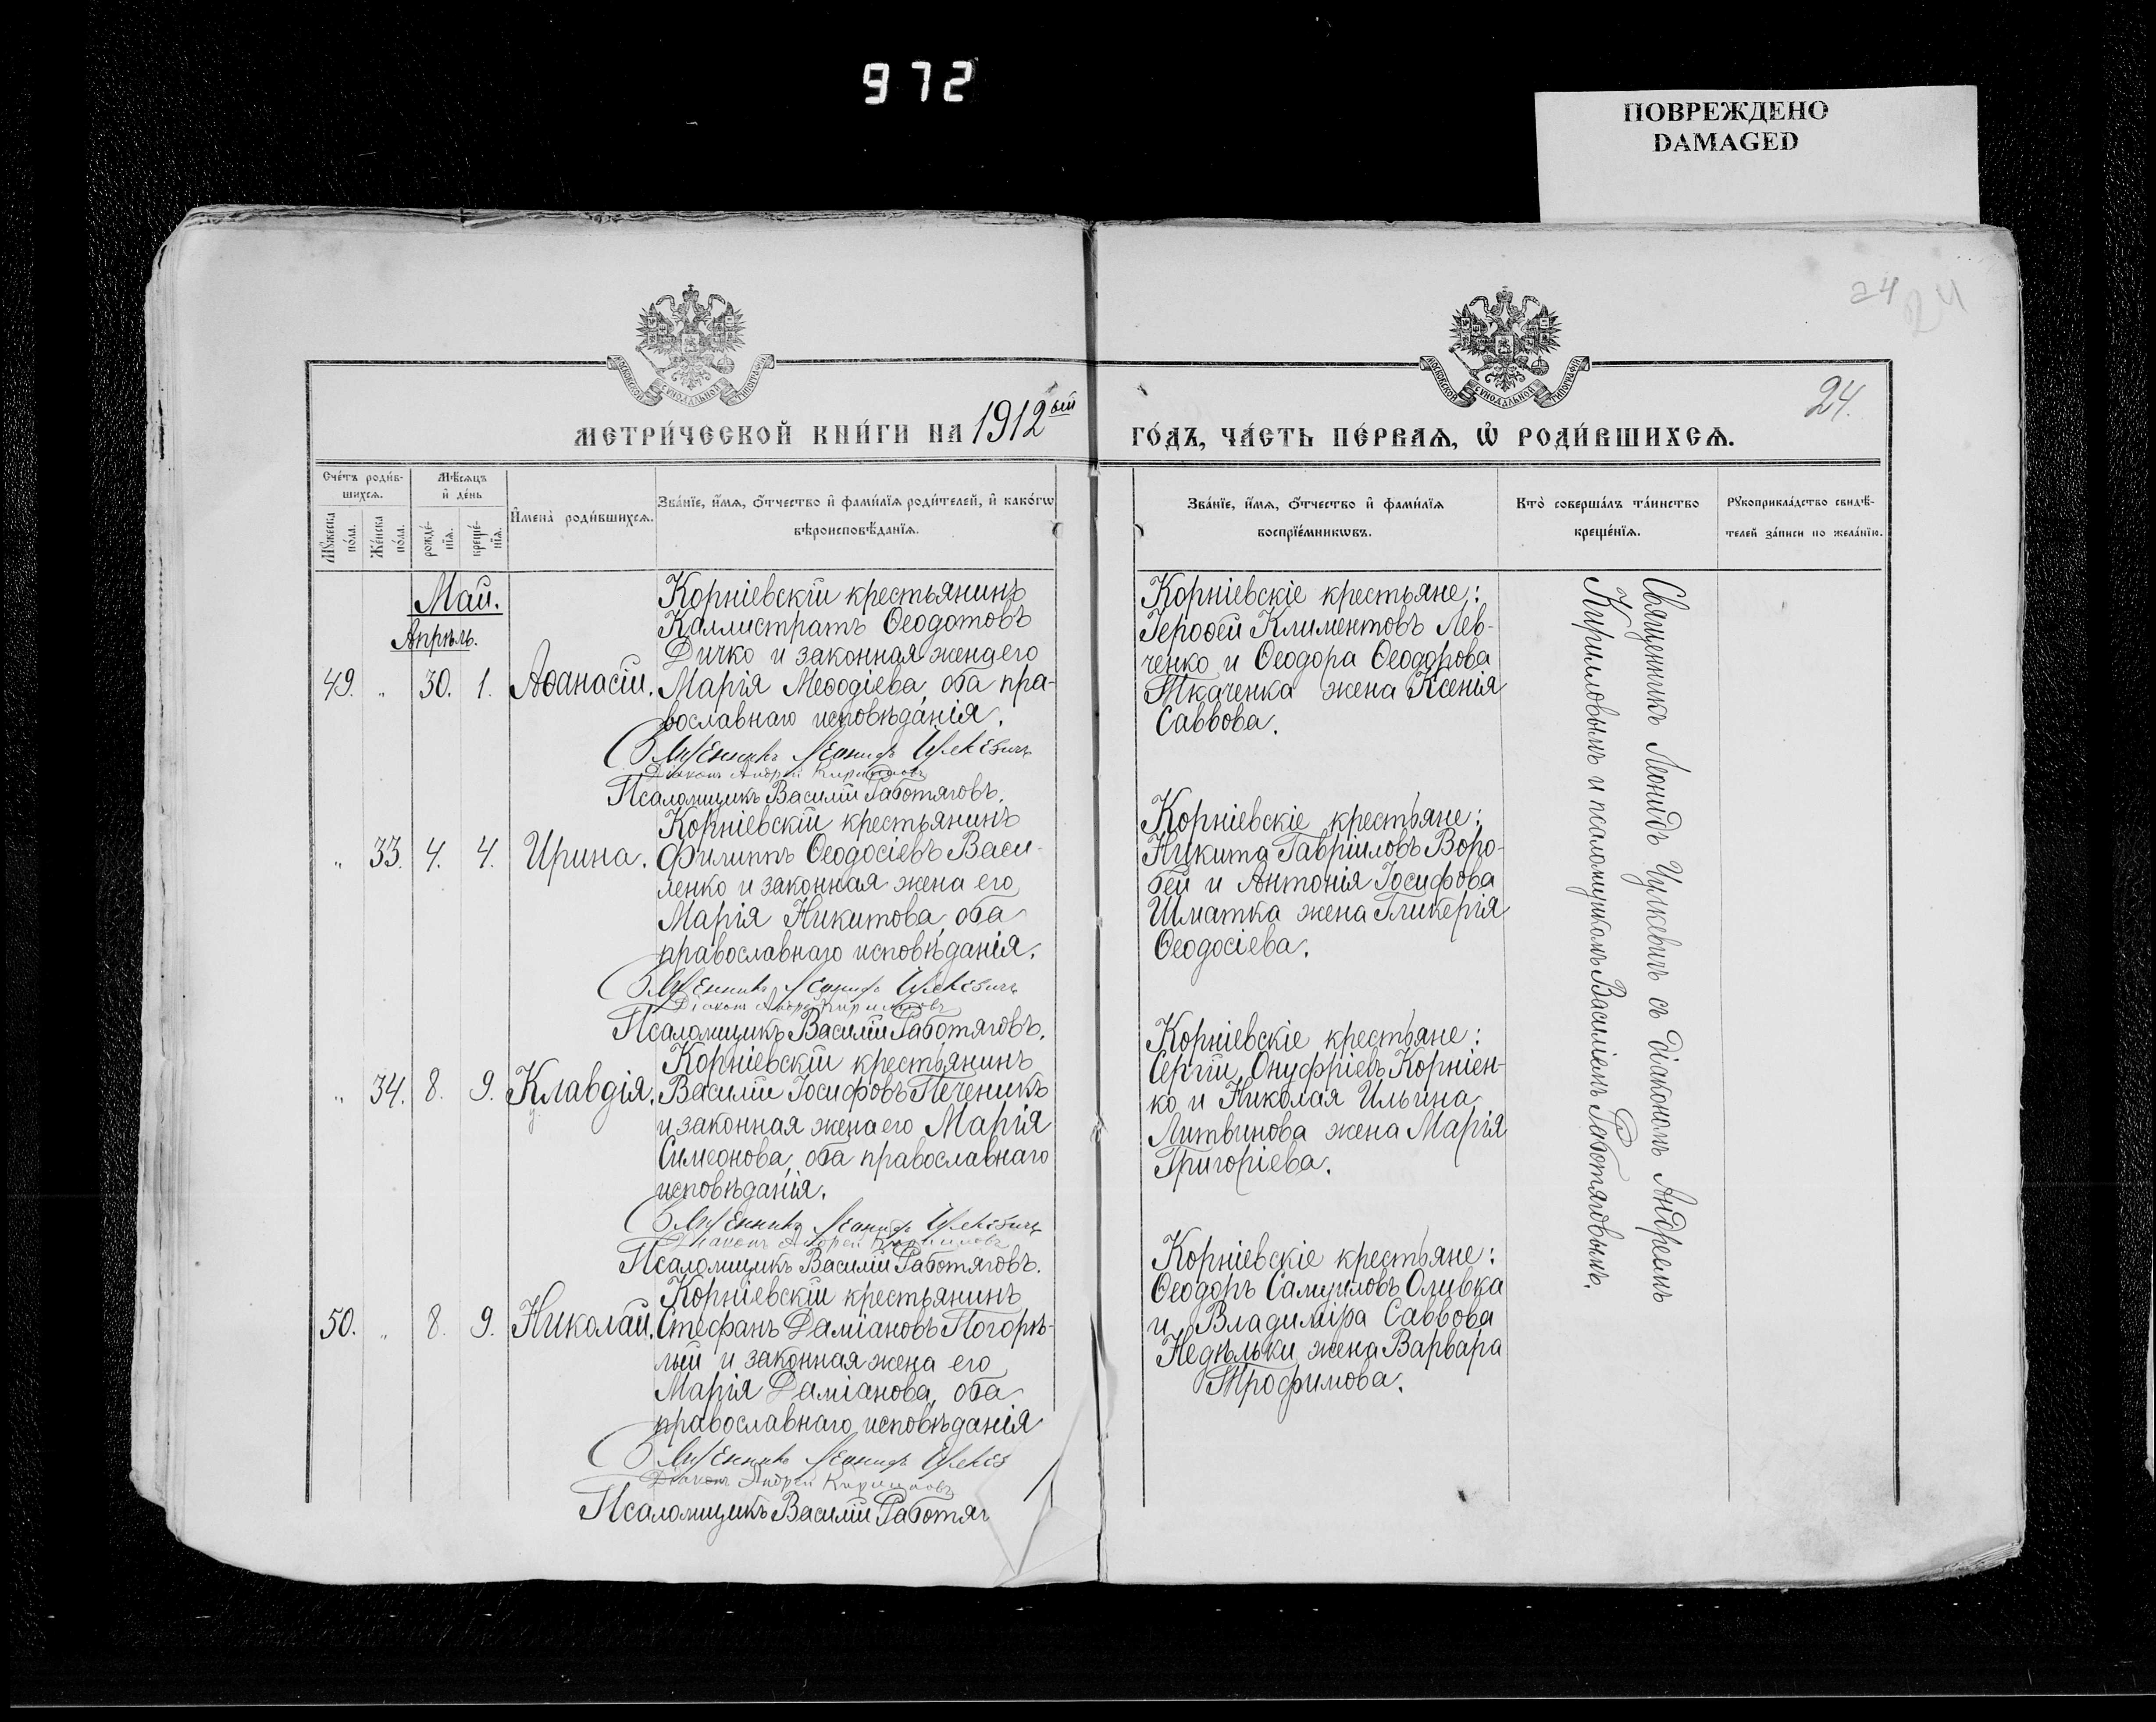 972
ПОВРЕЖДЕНО
DAMAGED
24
24
24.
МОСКОВСКОЙ СѴНОДАЛЬНОЙ ТИПОГРАФІИ
МОСКОВСКОЙ СѴНОДАЛЬНОЙ ТИПОГРАФІИ
МЕТРИ́ЧЕСКОЙ КНИ́ГИ НА 1912ый
ГО́ДЪ, ЧА́СТЬ ПЕ́РВАѦ, Ѡ҆ РОДИ́ВШИХСѦ.
Сче́тъ роди́в-
шихсѧ.
Мꙋ́жеска
по́ла.
Же́нска
по́ла.
Мѣ́сѧцъ
и҆ де́нь
рожде́-
нїѧ.
креще́-
нїѧ.
И҆мена̀ роди́вшихсѧ.
Зва́нїе, и҆́мѧ, ѻ҆́тчество и҆ фами́лїѧ роди́телей, и҆ како́гѡ
вѣроисповѣ́данїѧ.
Зва́нїе, и҆́мѧ, ѻ҆́тчество и҆ фами́лїѧ
воспрїе́мникѡвъ.
Кто̀ соверша́лъ та́инство
креще́нїѧ.
Рꙋкоприкла́дство свидѣ́-
телей за́писи по жела́нїю.
Май.
Апрѣль.
49. „ 30. 1. Аѳанасій.
Корніевскій крестьянинъ
Каллистратъ Ѳеодотовъ
Дичко и законная жена его
Марія Меѳодіева, оба пра-
вославнаго исповѣданія.
Священникъ Леонидъ Цулкевичъ
Діаконъ Андрей Кирилловъ
Псаломщикъ Василій Работяговъ.
Корніевскіе крестьяне:
Іероѳей Климентовъ Лев-
ченко и Ѳеодора Ѳеодорова
Ткаченка жена Ксенія
Саввова.
„ 33. 4. 4. Ирина.
Корніевскій крестьянинъ
Филиппъ Ѳеодосіевъ Васи-
ленко и законная жена его
Марія Никитова, оба
православнаго исповѣданія.
Священникъ Леонидъ Цулкевичъ
Діаконъ Андрей Кирилловъ
Псаломщикъ Василій Работяговъ.
Корніевскіе крестьяне:
Никита Гавріиловъ Воро-
бей и Антонія Іосифова
Шматка жена Гликерія
Ѳеодосіева.
„ 34. 8. 9. Клавдія.
Корніевскій крестьянинъ
Василій Іосифовъ Печеникъ
и законная жена его Марія
Симеонова, оба православнаго
исповѣданія.
Священникъ Леонидъ Цулкевичъ
Діаконъ Андрей Кирилловъ
Псаломщикъ Василій Работяговъ.
Корніевскіе крестьяне:
Сергій Онуфріевъ Корніен-
ко и Николая Ильина
Литвинова жена Марія
Григоріева.
50. „ 8. 9. Николай.
Корніевскій крестьянинъ
Стефанъ Даміановъ Погорѣ-
лый и законная жена его
Марія Даміанова, оба
православнаго исповѣданія
Священникъ Леонидъ Цулкев
Діаконъ Андрей Кирилловъ
Псаломщикъ Василій Работяг
Корніевскіе крестьяне:
Ѳеодоръ Самуиловъ Оливка
и Владиміра Саввова
Недѣльки жена Варвара
Трофимова.
Священникъ Леонидъ Цулкевичъ съ діакономъ Андреемъ
Кирилловымъ и псаломщикомъ Василіемъ Работяговымъ.